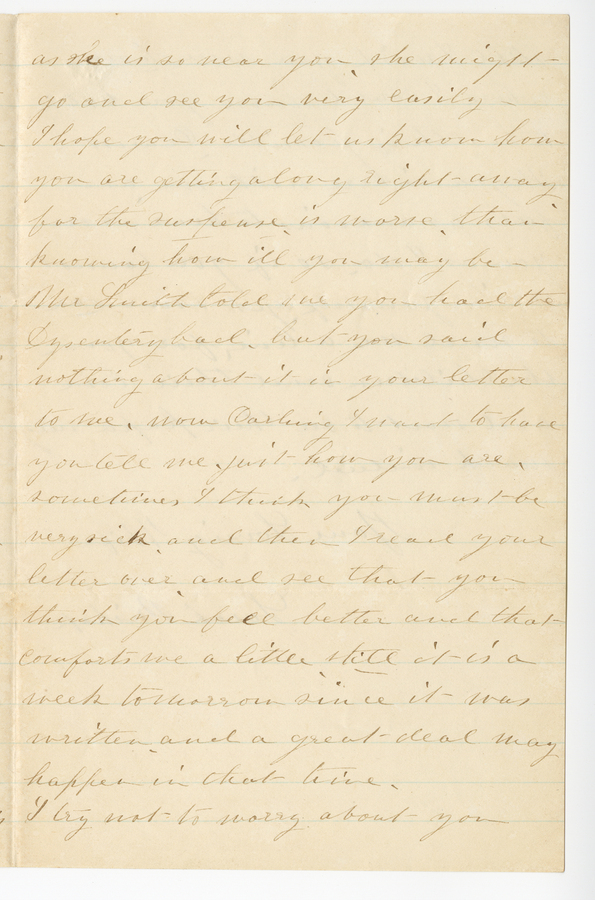 as she is so near you she might
go and see you very easily –
I hope you will let us know how
you are getting along right away
for the suspense is worse than
knowing how ill you may be –
Mr Smith told me you had the
Dysentery bad, but you said
nothing about it in your letter
to me, now Darling I want to have
you tell me just how you are,
sometimes I think you must be
very sick and then I read your
letter over and see that you
think you feel better and that
comforts me a little still it is a
week tomorrow since it was
written and a great deal may
happen in that time.
I try not to worry about you